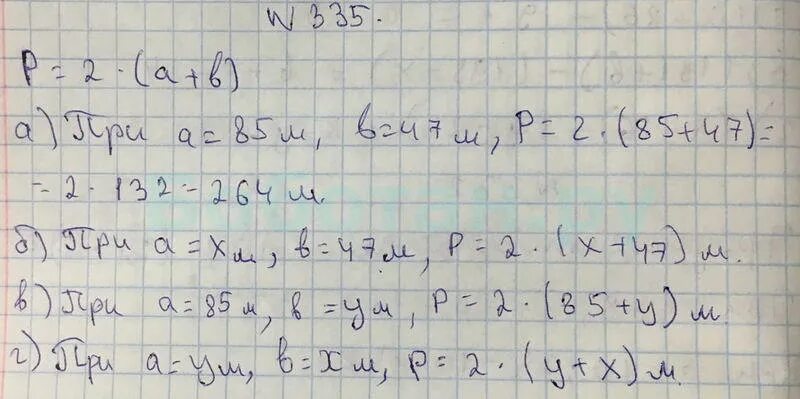 № 335.
P = 2 · (а + в)
а) При а = 85 м, в = 47 м, P = 2 · (85 + 47) =
= 2 · 132 = 264 м.
б) При а = х м, в = 47 м, P = 2 · (х + 47) м.
в) При а = 85 м, в = у м, P = 2 · (85 + у) м
г) При а = у м, в = х м, P = 2 · (у + х) м.